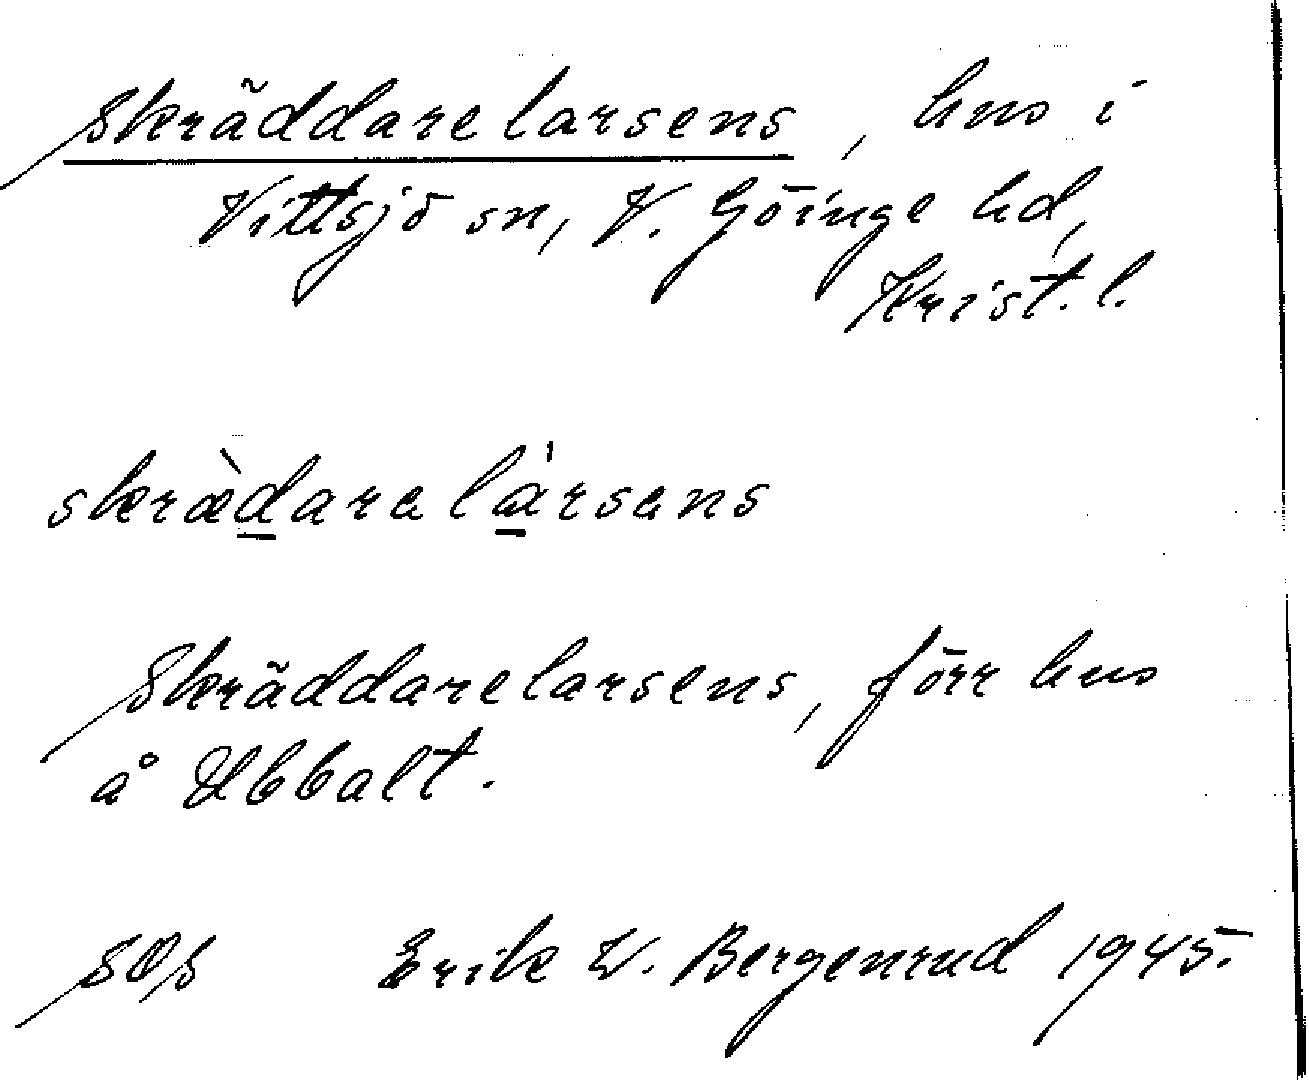 Skräddarelarsens, hus i
Vittsjö sn, V. Göinge hd,
Krist. l.
skrædaralarsans
Skräddarelarsens, förr hus
å Ubbalt.
SOS Erik W. Bergenrud 1945.